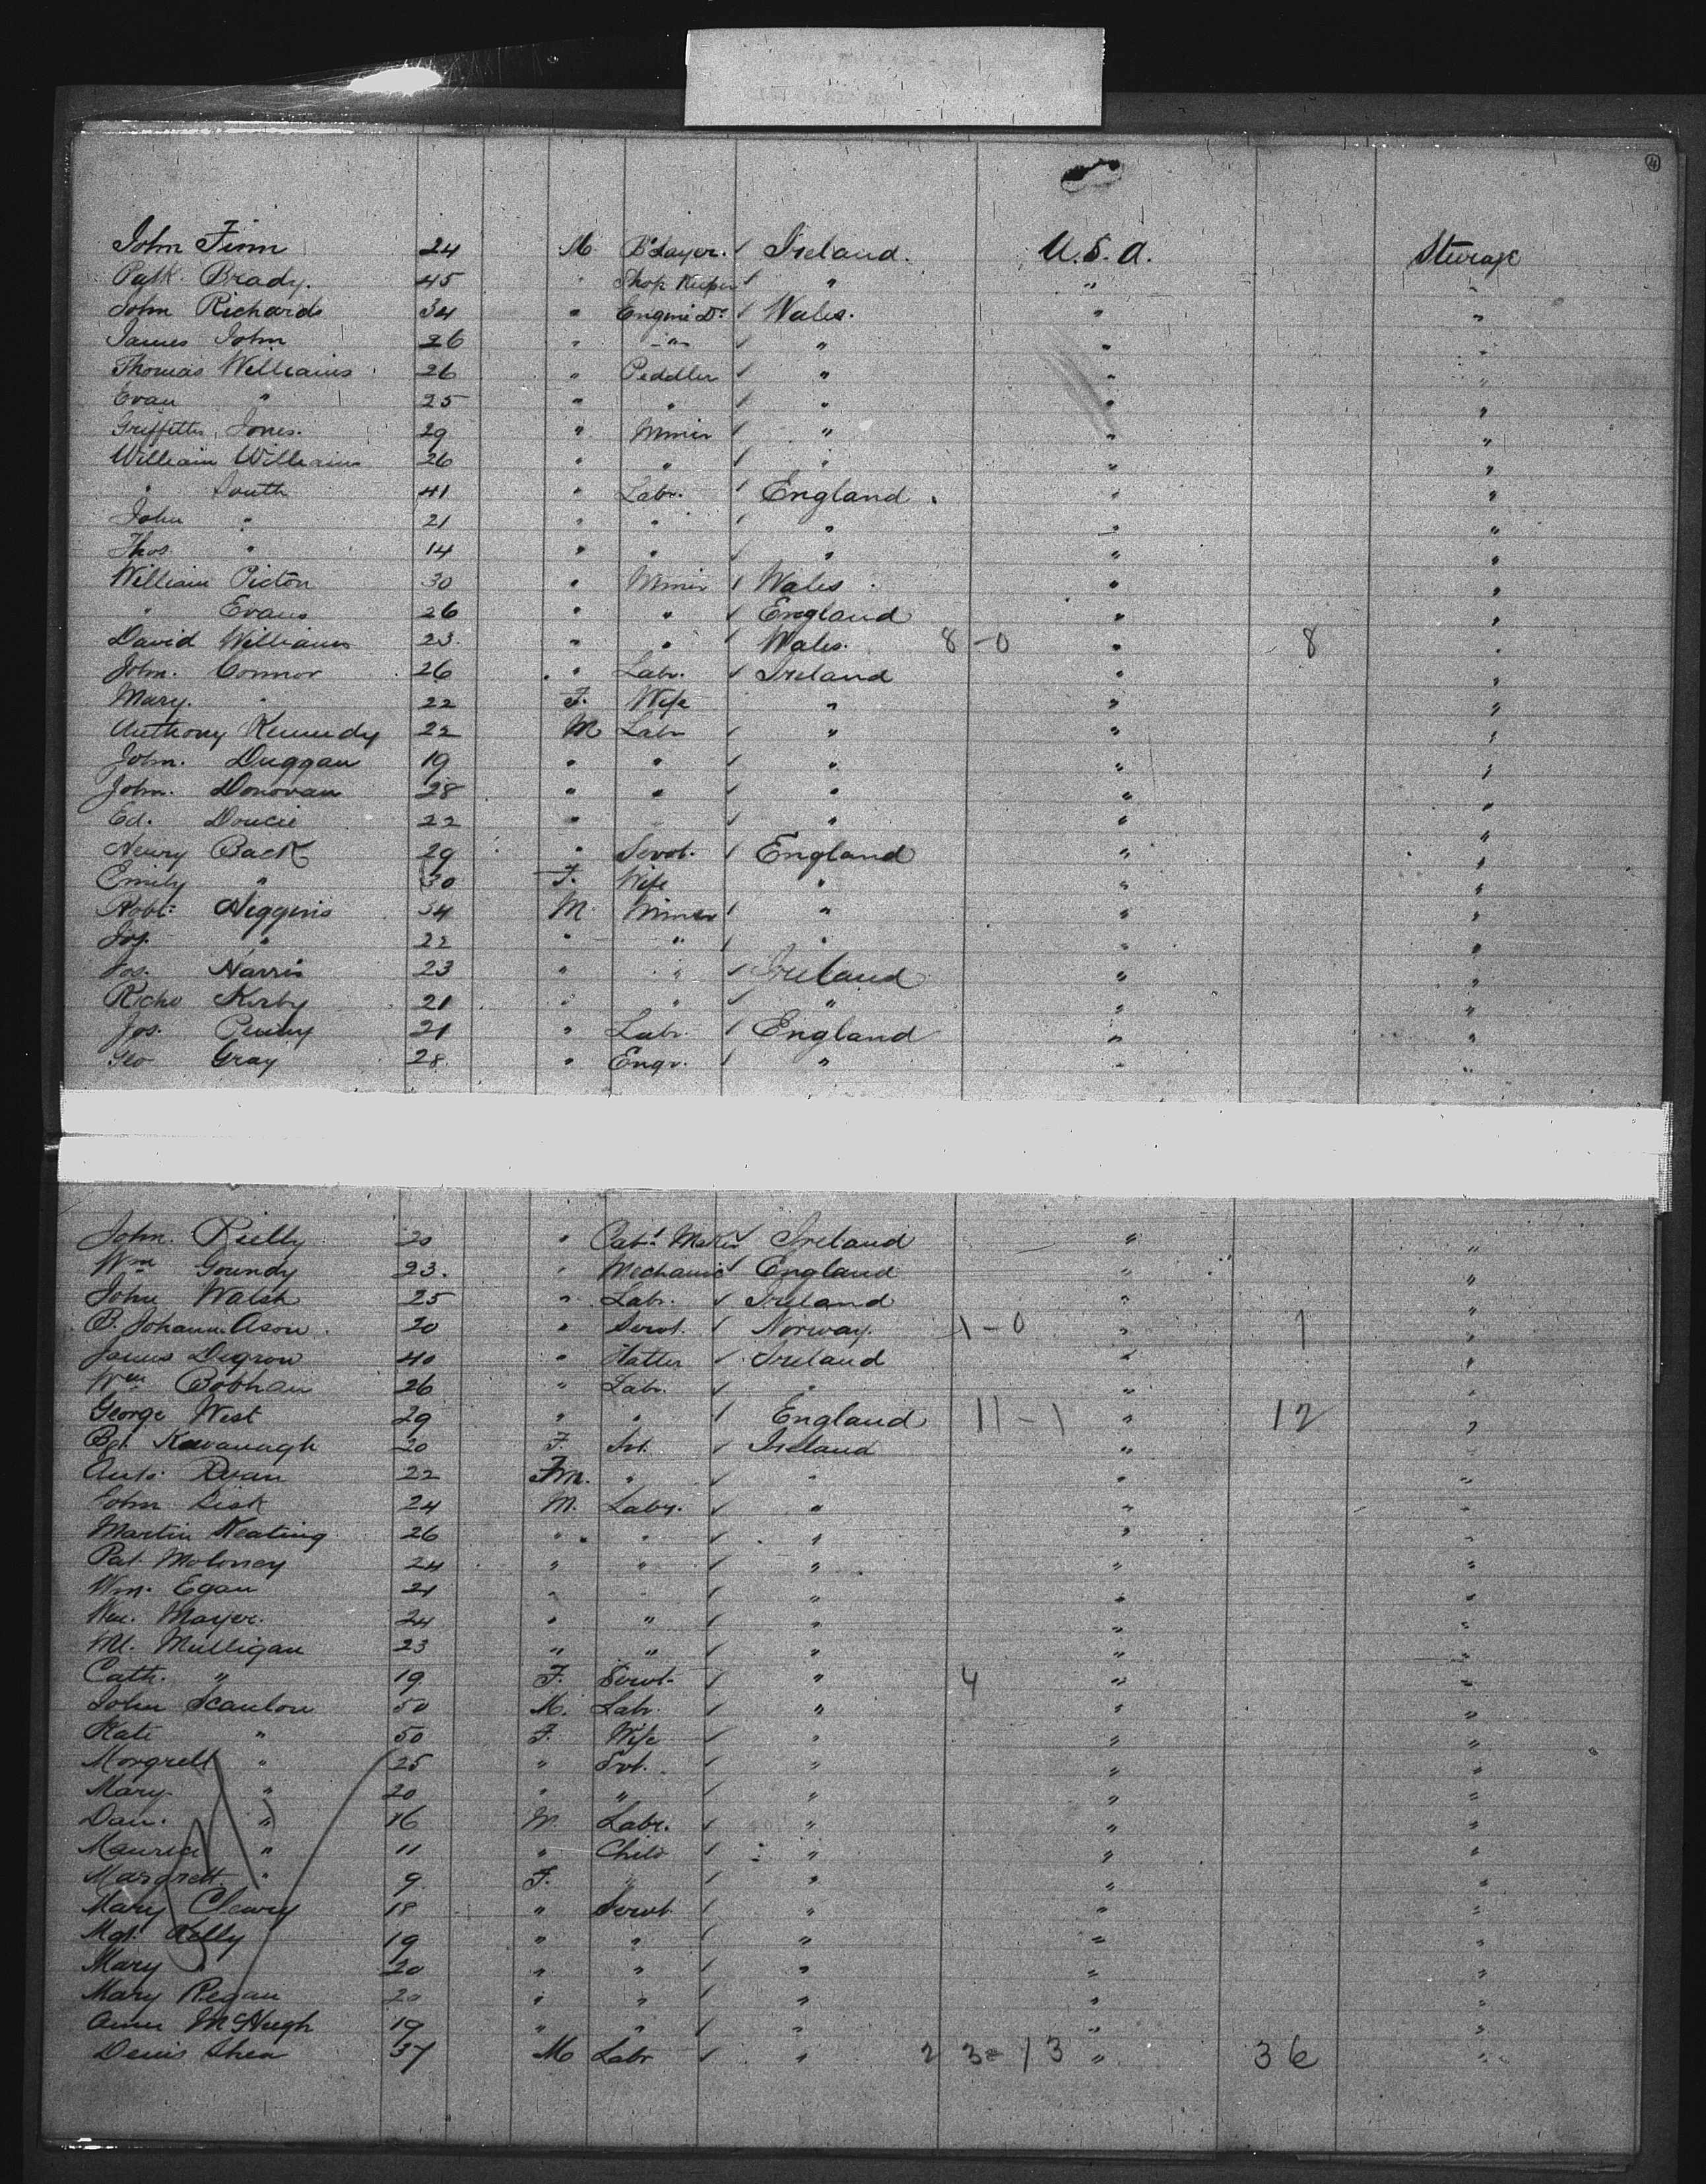 4
John Finn 24 M B'Layer. ✓ Ireland. U.S.A. Sterage
Patk. Brady. 45 " Shop Keeper ✓ " " "
John Richards 34 " Engine Dr ✓ Wales. " "
James John 26 " " ✓ " " "
Thomas Williams 26 " Peddler ✓ " " "
Evan " 25 " " ✓ " " "
Griffith Jones. 29 " Miner ✓ " " "
William Williams 26 " " ✓ " " "
" South 41 " Labr. ✓ England. " "
John " 21 " " ✓ " " "
Thos. " 14 " " ✓ " " "
William Picton 30 " Miner ✓ Wales " "
" Evans 26 " " ✓ England " "
David Williams 23 " " ✓ Wales. 8-0 " 8 "
John. Connor 26 " Labr. ✓ Ireland " "
Mary. " 22 F. Wife " " "
Anthony Kennedy 22 M Labr ✓ " " "
John. Duggan 19 " " ✓ " " "
John. Donovan 28 " " ✓ " " "
Ed. 22 " " ✓ " " "
Henry Back 29 " Servt. ✓ England " "
Emily " 30 F. Wife " " "
Robt. Higgins 34 M Miner ✓ " " "
Jos. " 22 " " ✓ " " "
Jos. Harris 23 " " ✓ Ireland " "
Richd Kirby 21 " " ✓ " " "
Jos. Penny 21 " Labr. ✓ England " "
Geo Gray 28 " Engr. ✓ " " "
John. Rielly 20 " Cabt. Maker ✓ Ireland " "
Wm Goundy 23. " Mechanic ✓ England " "
John Walsh 25 " Labr. ✓ Ireland " "
B. Johann Ason. 20 " Servt. ✓ Norway. 1-0 " 1 "
James 40 " Hatter ✓ Ireland " "
Wm 26 " Labr. ✓ " " "
George West 29 " " ✓ England 11-1 " 12 "
Bgt. Kavanagh 20 F. Svt. ✓ Ireland " "
Ryan 22 Fm. " ✓ " " "
John Sisk 24 M. Labr. ✓ " " "
Martin Keating 26 " " ✓ " " "
Pat. Moloney 24 " " ✓ " " "
Wm. Egan 21 " " ✓ " " "
Wm. Mayer. 24 " " ✓ " " "
Ml. Mulligan 23 " " ✓ " " "
Cath. " 19 F. Servt. ✓ " 4 " "
John Scanlon 50 M. Labr. ✓ " " "
Kate " 50 F. Wife ✓ " " "
Morgrett " 25 " Svt. ✓ " " "
Mary. " 20 " " ✓ " " "
Dan. " 16 M. Labr. ✓ " " "
Maurice " 11 " Child ✓ " " "
Margrett " 9 F. " ✓ " " "
Mary Cleary 18 " Servt. ✓ " " "
Mgt. Kelly 19 " " ✓ " " "
Mary " 20 " " ✓ " " "
Mary Regan 20 " " ✓ " " "
Anne McHugh 19 " " ✓ " " "
Denis Shea 37 M Labr ✓ " 23-13 " 36 "